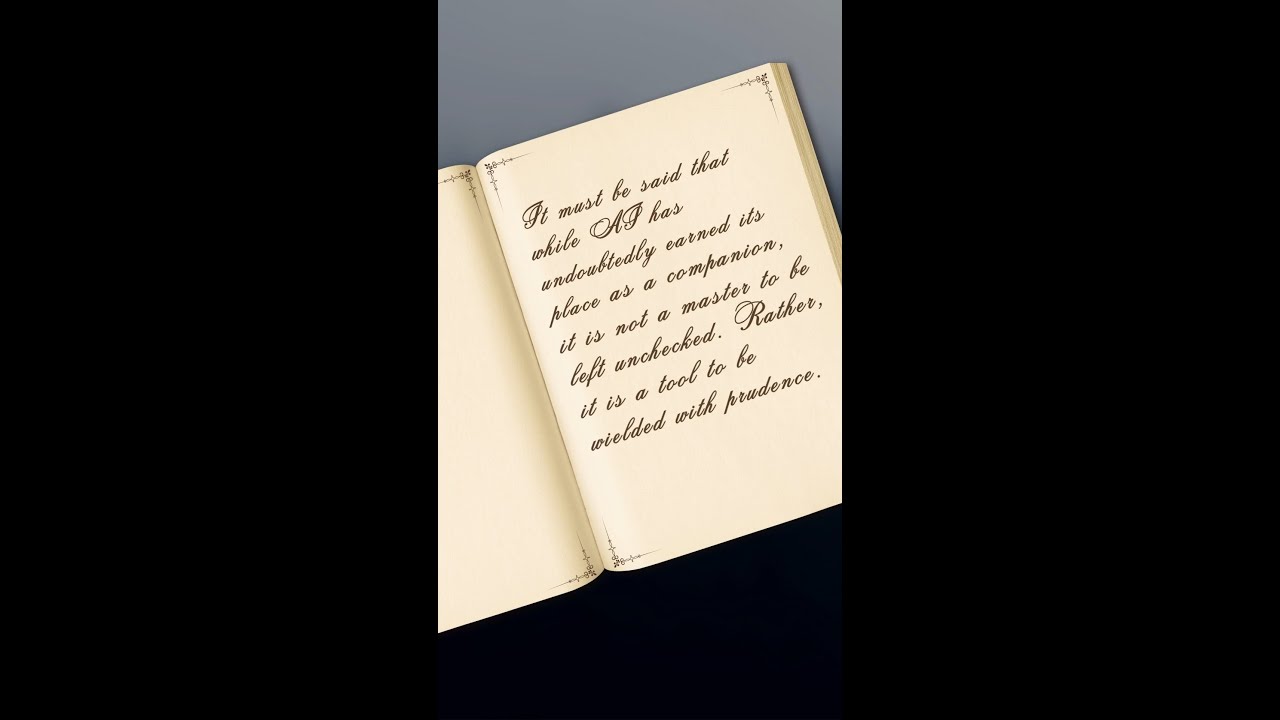 It must be said that
while AI has
undoubtedly earned its
place as a companion,
it is not a master to be
left unchecked. Rather,
it is a tool to be
wielded with prudence.